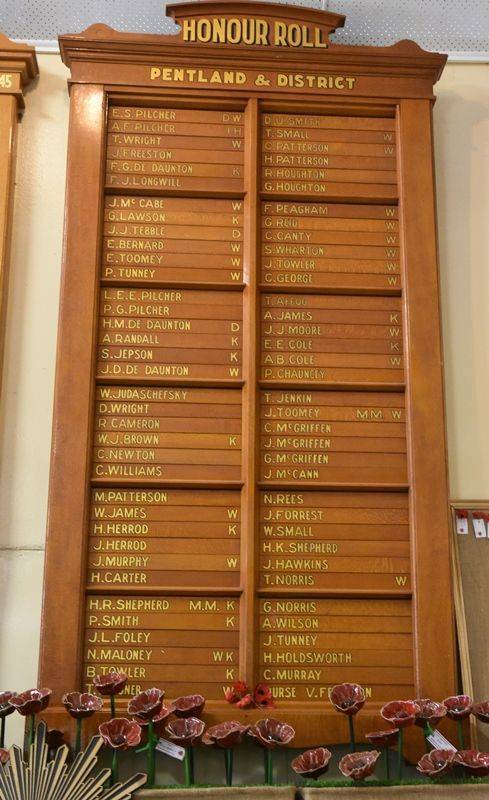 HONOUR ROLL
PENTLAND & DISTRICT
45
E.S. PILCHER D W
A.F. PILCHER
T. WRIGHT W
J. FREESTON
F.G. DE DAUNTON K
F.J. LONGWILL
J. McCABE W
G. LAWSON K
J.J. TEBBLE D
E. BERNARD W
E. TOOMEY W
P. TUNNEY W
L.E.E. PILCHER
P.G. PILCHER
H.M. DE DAUNTON D
A. RANDALL K
S. JEPSON K
J.D. DE DAUNTON W
W. JUDASCHEFSKY
D. WRIGHT
R CAMERON
W.J. BROWN K
C. NEWTON
C. WILLIAMS
M. PATTERSON
W. JAMES W
H. HERROD K
J. HERROD
J. MURPHY W
H. CARTER
H.R. SHEPHERD M.M. K
P. SMITH K
J.L. FOLEY
N. MALONEY W K
B. TOWLER K
W
D.U. SMITH
T. SMALL W
C. PATTERSON W
H. PATTERSON
R. HOUGHTON
G. HOUGHTON
F. PEAGHAM W
G. REID W
C. CANTY W
S. WHARTON W
J. TOWLER W
C. GEORGE W
T. AFFOO
A. JAMES K
J.J. MOORE W
E.E. COLE K
A.B. COLE W
P. CHAUNCEY
T. JENKIN
J. TOOMEY M.M. W
C. McGRIFFEN
J. McGRIFFEN
G. McGRIFFEN
J. McCANN
N. REES
J. FORREST
W. SMALL
H.K. SHEPHERD
J. HAWKINS
T. NORRIS W
G. NORRIS
A. WILSON
J. TUNNEY
H. HOLDSWORTH
C. MURRAY
NURSE V.